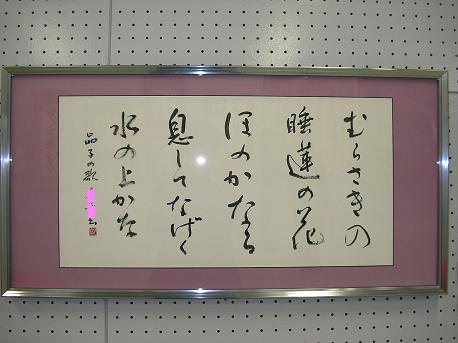 むらさきの
睡蓮の花
ほのかなる
息してなげく
水の上かな
晶子の歌